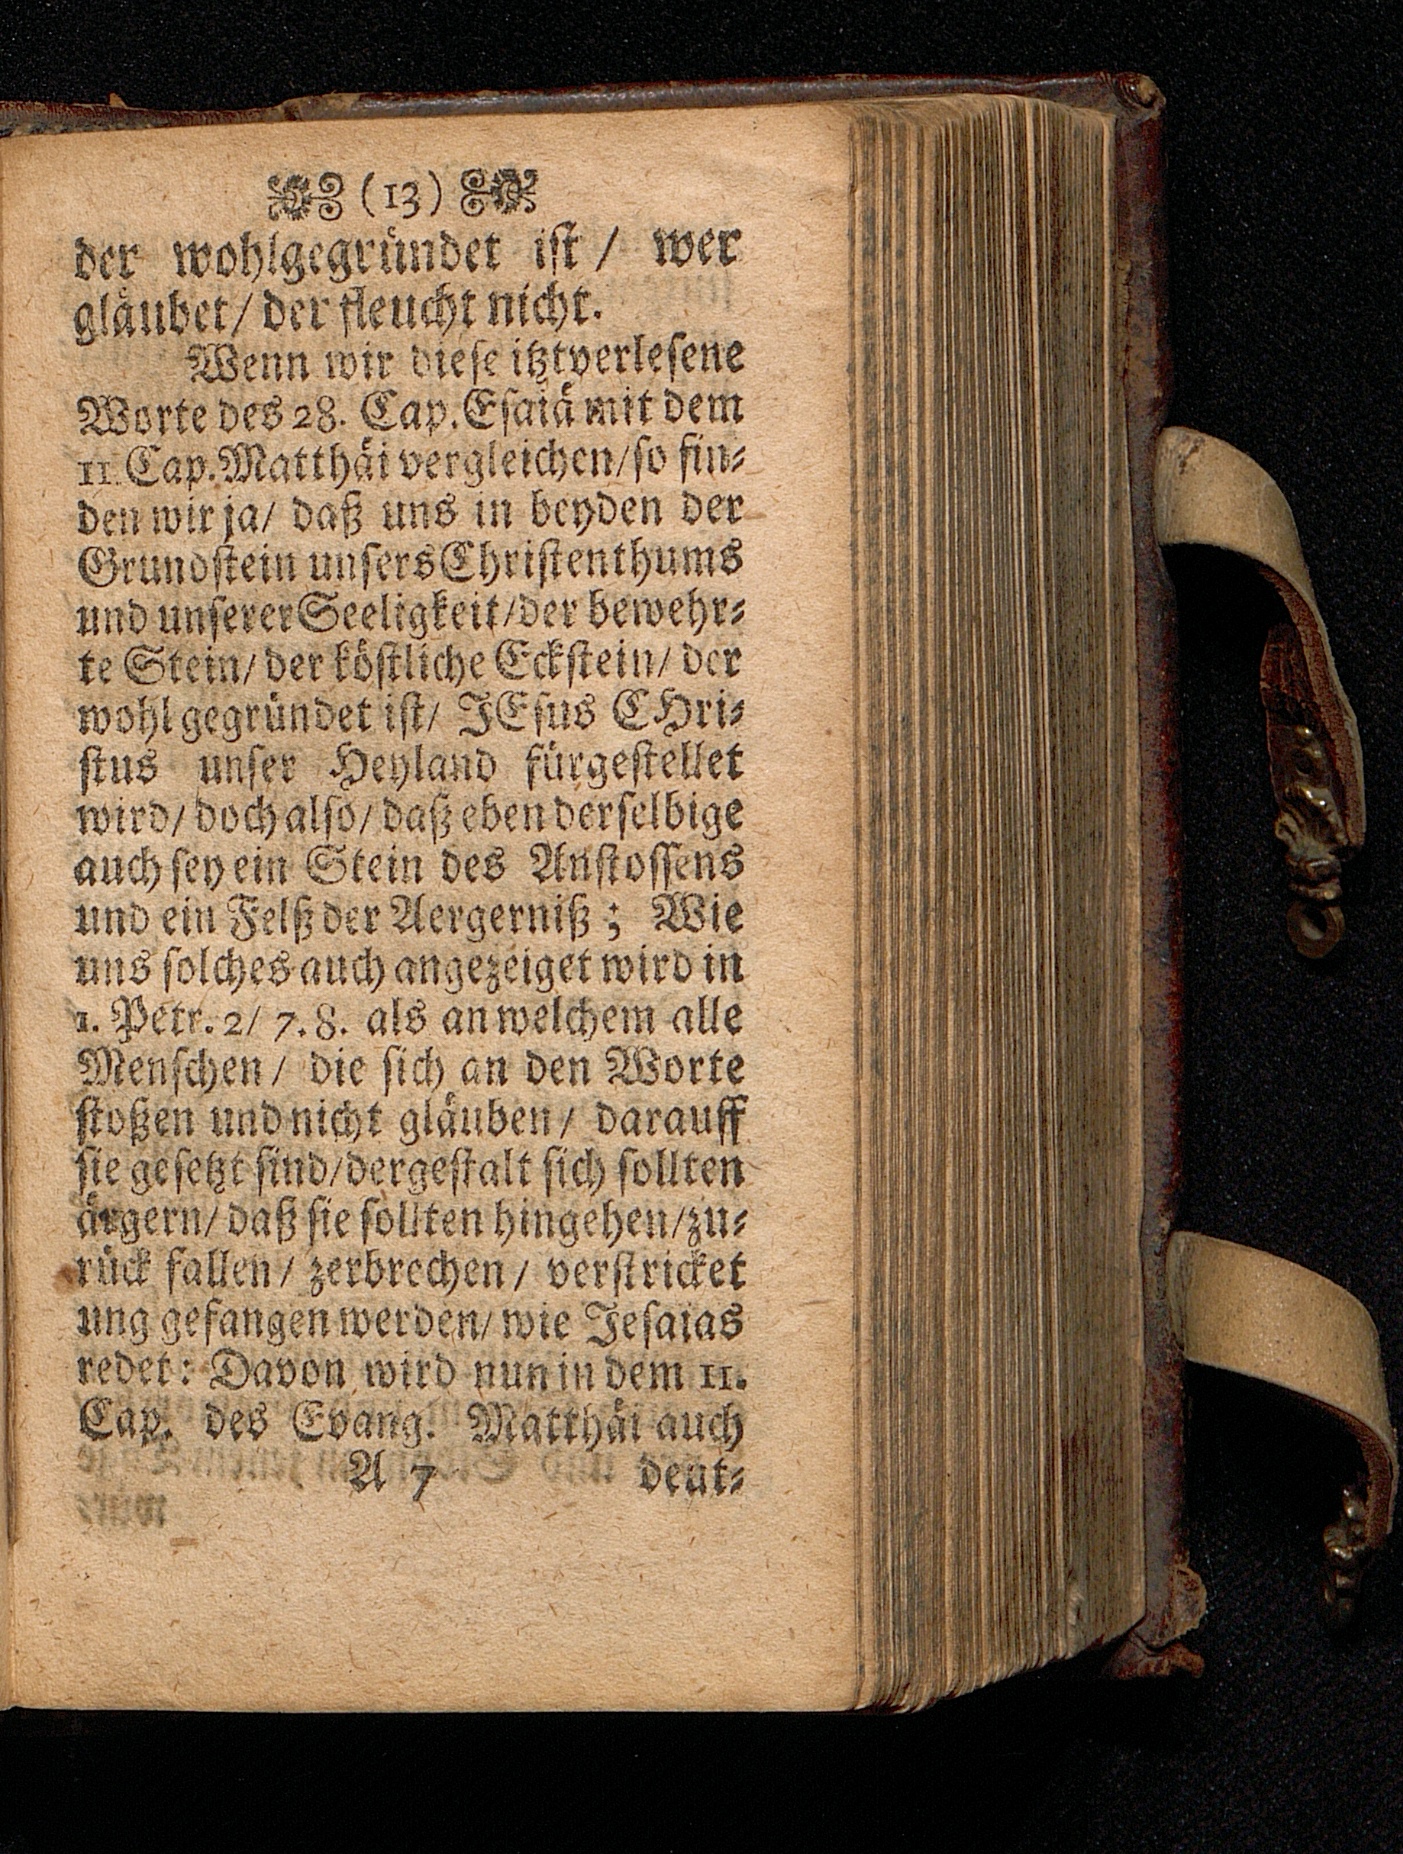 (13)
der wohlgegründet ist / wer
gläubet / der fleucht nicht.
Wenn wir diese itztverlesene
Worte des 28. Cap. Esaiä mit dem
11. Cap. Matthäi vergleichen / so fin-
den wir ja / daß uns in beyden der
Grundstein unsers Christenthums
und unserer Seeligkeit / der bewehr-
te Stein / der köstliche Eckstein / der
wohl gegründet ist / JEsus CHri-
stus unser Heyland fürgestellet
wird / doch also / daß eben derselbige
auch sey ein Stein des Anstossens
und ein Felß der Aergerniß; Wie
uns solches auch angezeiget wird in
1. Petr. 2 / 7. 8. als an welchem alle
Menschen / die sich an den Worte
stoßen und nicht gläuben / darauff
sie gesetzt sind / dergestalt sich sollten
ärgern / daß sie sollten hingehen / zu-
rück fallen / zerbrechen / verstricket
ung gefangen werden / wie Jesaias
redet: Davon wird nun in dem 11.
Cap. des Evang. Matthäi auch
A 7 deut-